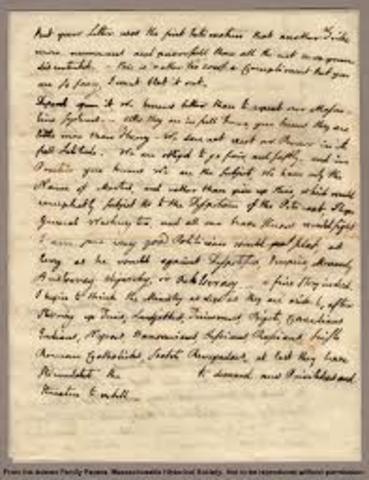 But your Letter was the first Intimation that another Tribe
more numerous and powerfull than all the rest were grown
discontented. — This is rather too coarse a Compliment but you
are so saucy, I wont blot it out.
Depend upon it, We know better than to repeal our Mascu-
line systems. Altho they are in full Force, you know they are
little more than Theory. We dare not exert our Power in its
full Latitude. We are obliged to go fair, and softly, and in
Practice you know We are the subjects. We have only the
Name of Masters, and rather than give up this, which would
compleatly subject Us to the Despotism of the Peticoat, I hope
General Washington, and all our brave Heroes would fight.
I am sure every good Politician would plot, as
long as he would against Despotism, Empire, Monarchy,
Aristocracy, Oligarchy, or Ochlocracy. — A fine Story indeed.
I begin to think the Ministry as deep as they are wicked. after
stirring up Tories, Landjobbers, Trimmers, Bigots, Canadians,
Indians, Negroes, Hanoverians, Hessians, Russians, Irish
Roman Catholicks, Scotch Renegadoes, at last they have
stimulated the to demand new Priviledges and
threaten to rebell.
From the Adams Family Papers, Massachusetts Historical Society. Not to be reproduced without permission.